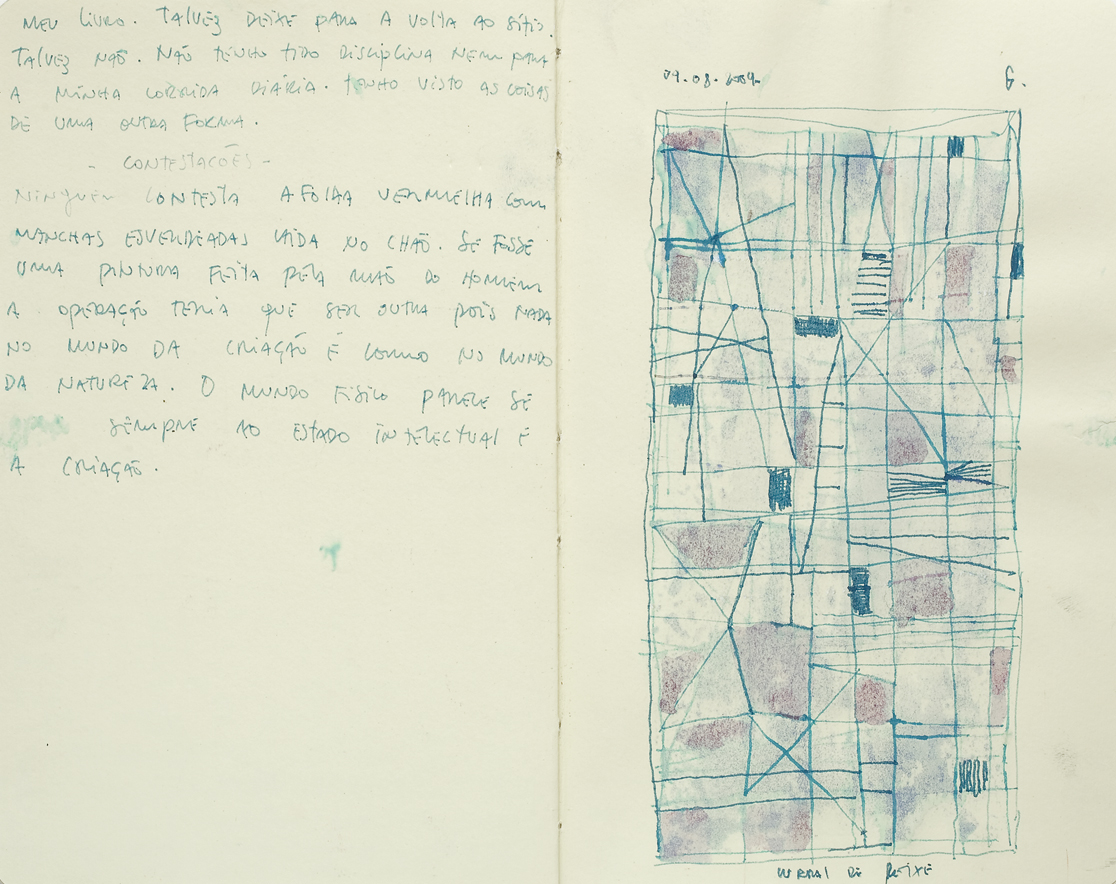 MEU LIVRO. TALVEZ DEIXE PARA A VOLTA AO SÍTIO.
TALVEZ NÃO. NÃO TENHO TIDO DISCIPLINA NEM PARA
A MINHA CORRIDA DIÁRIA. TENHO VISTO AS COISAS
DE UMA OUTRA FORMA.
- CONTESTAÇÕES -
NINGUEM CONTESTA A FOLHA VERMELHA COM
MANCHAS ESVERDEADAS CAÍDA NO CHÃO. SE FOSSE
UMA PINTURA FEITA PELA MÃO DO HOMEM
A OPERAÇÃO TERIA QUE SER OUTRA POIS NADA
NO MUNDO DA CRIAÇÃO É COMO NO MUNDO
DA NATUREZA. O MUNDO FISICO PARECE SE
SEMPRE AO ESTADO INTELECTUAL E
A CRIAÇÃO.
29.08.2009 G.
CURRAL DE PEIXE